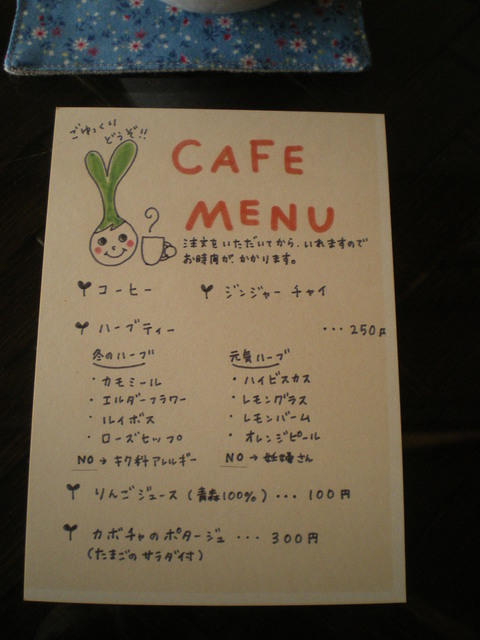 ごゆっくり
どうぞ!!
CAFE
MENU
注文をいただいてから、いれますので
お時間が、かかります。
コーヒー ジンジャー チャイ
ハーブティー ・・・250円
冬のハーブ 元気ハーブ
・カモミール ・ハイビスカス
・エルダーフラワー ・レモングラス
・ルイボス ・レモンバーム
・ローズヒップ ・オレンジピール
NO→キク科アレルギー NO→妊婦さん
りんごジュース(青森100%)・・・100円
カボチャのポタージュ ・・・300円
(たまごのサラダ付)